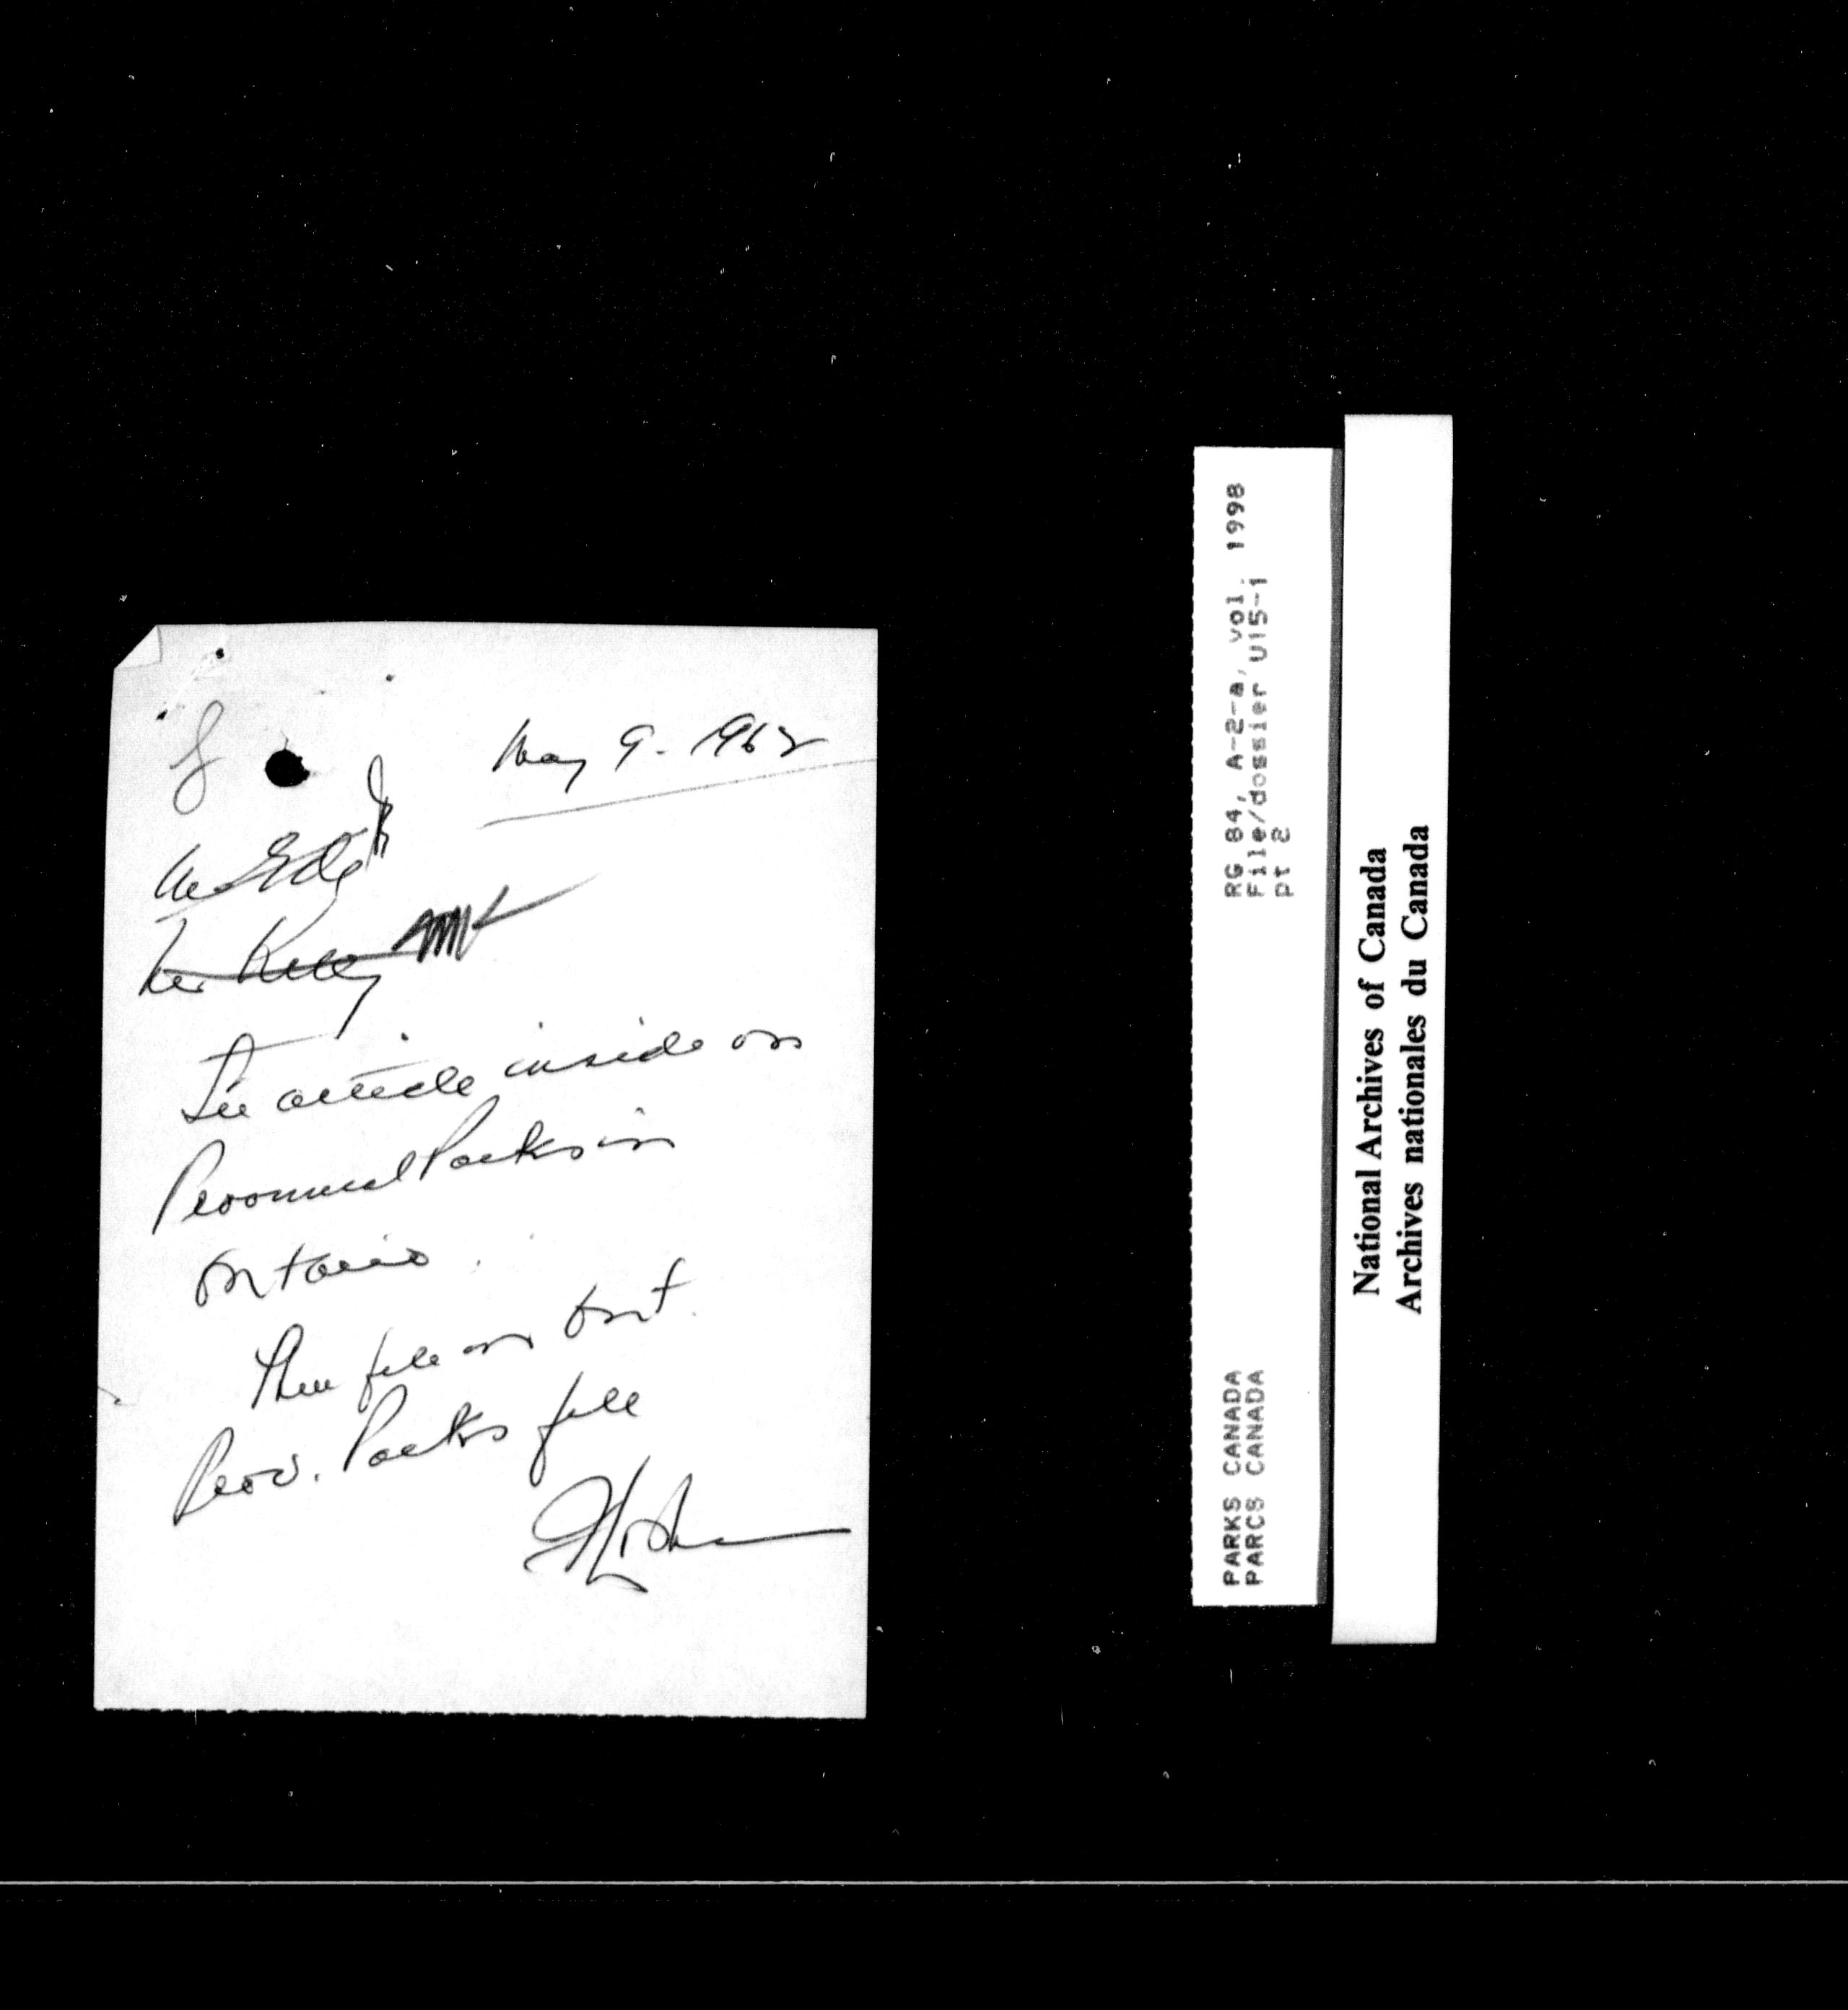 May 9. 1962
Mr
Mr. Kelly
See article inside on
Provincial Parks in
Ontario.
Then file on Ont.
Prov. Parks file
RG 84, A-2-a, vol. 1998
File/dossier U15-1
pt 2
PARKS CANADA
PARCS CANADA
National Archives of Canada
Archives nationales du Canada